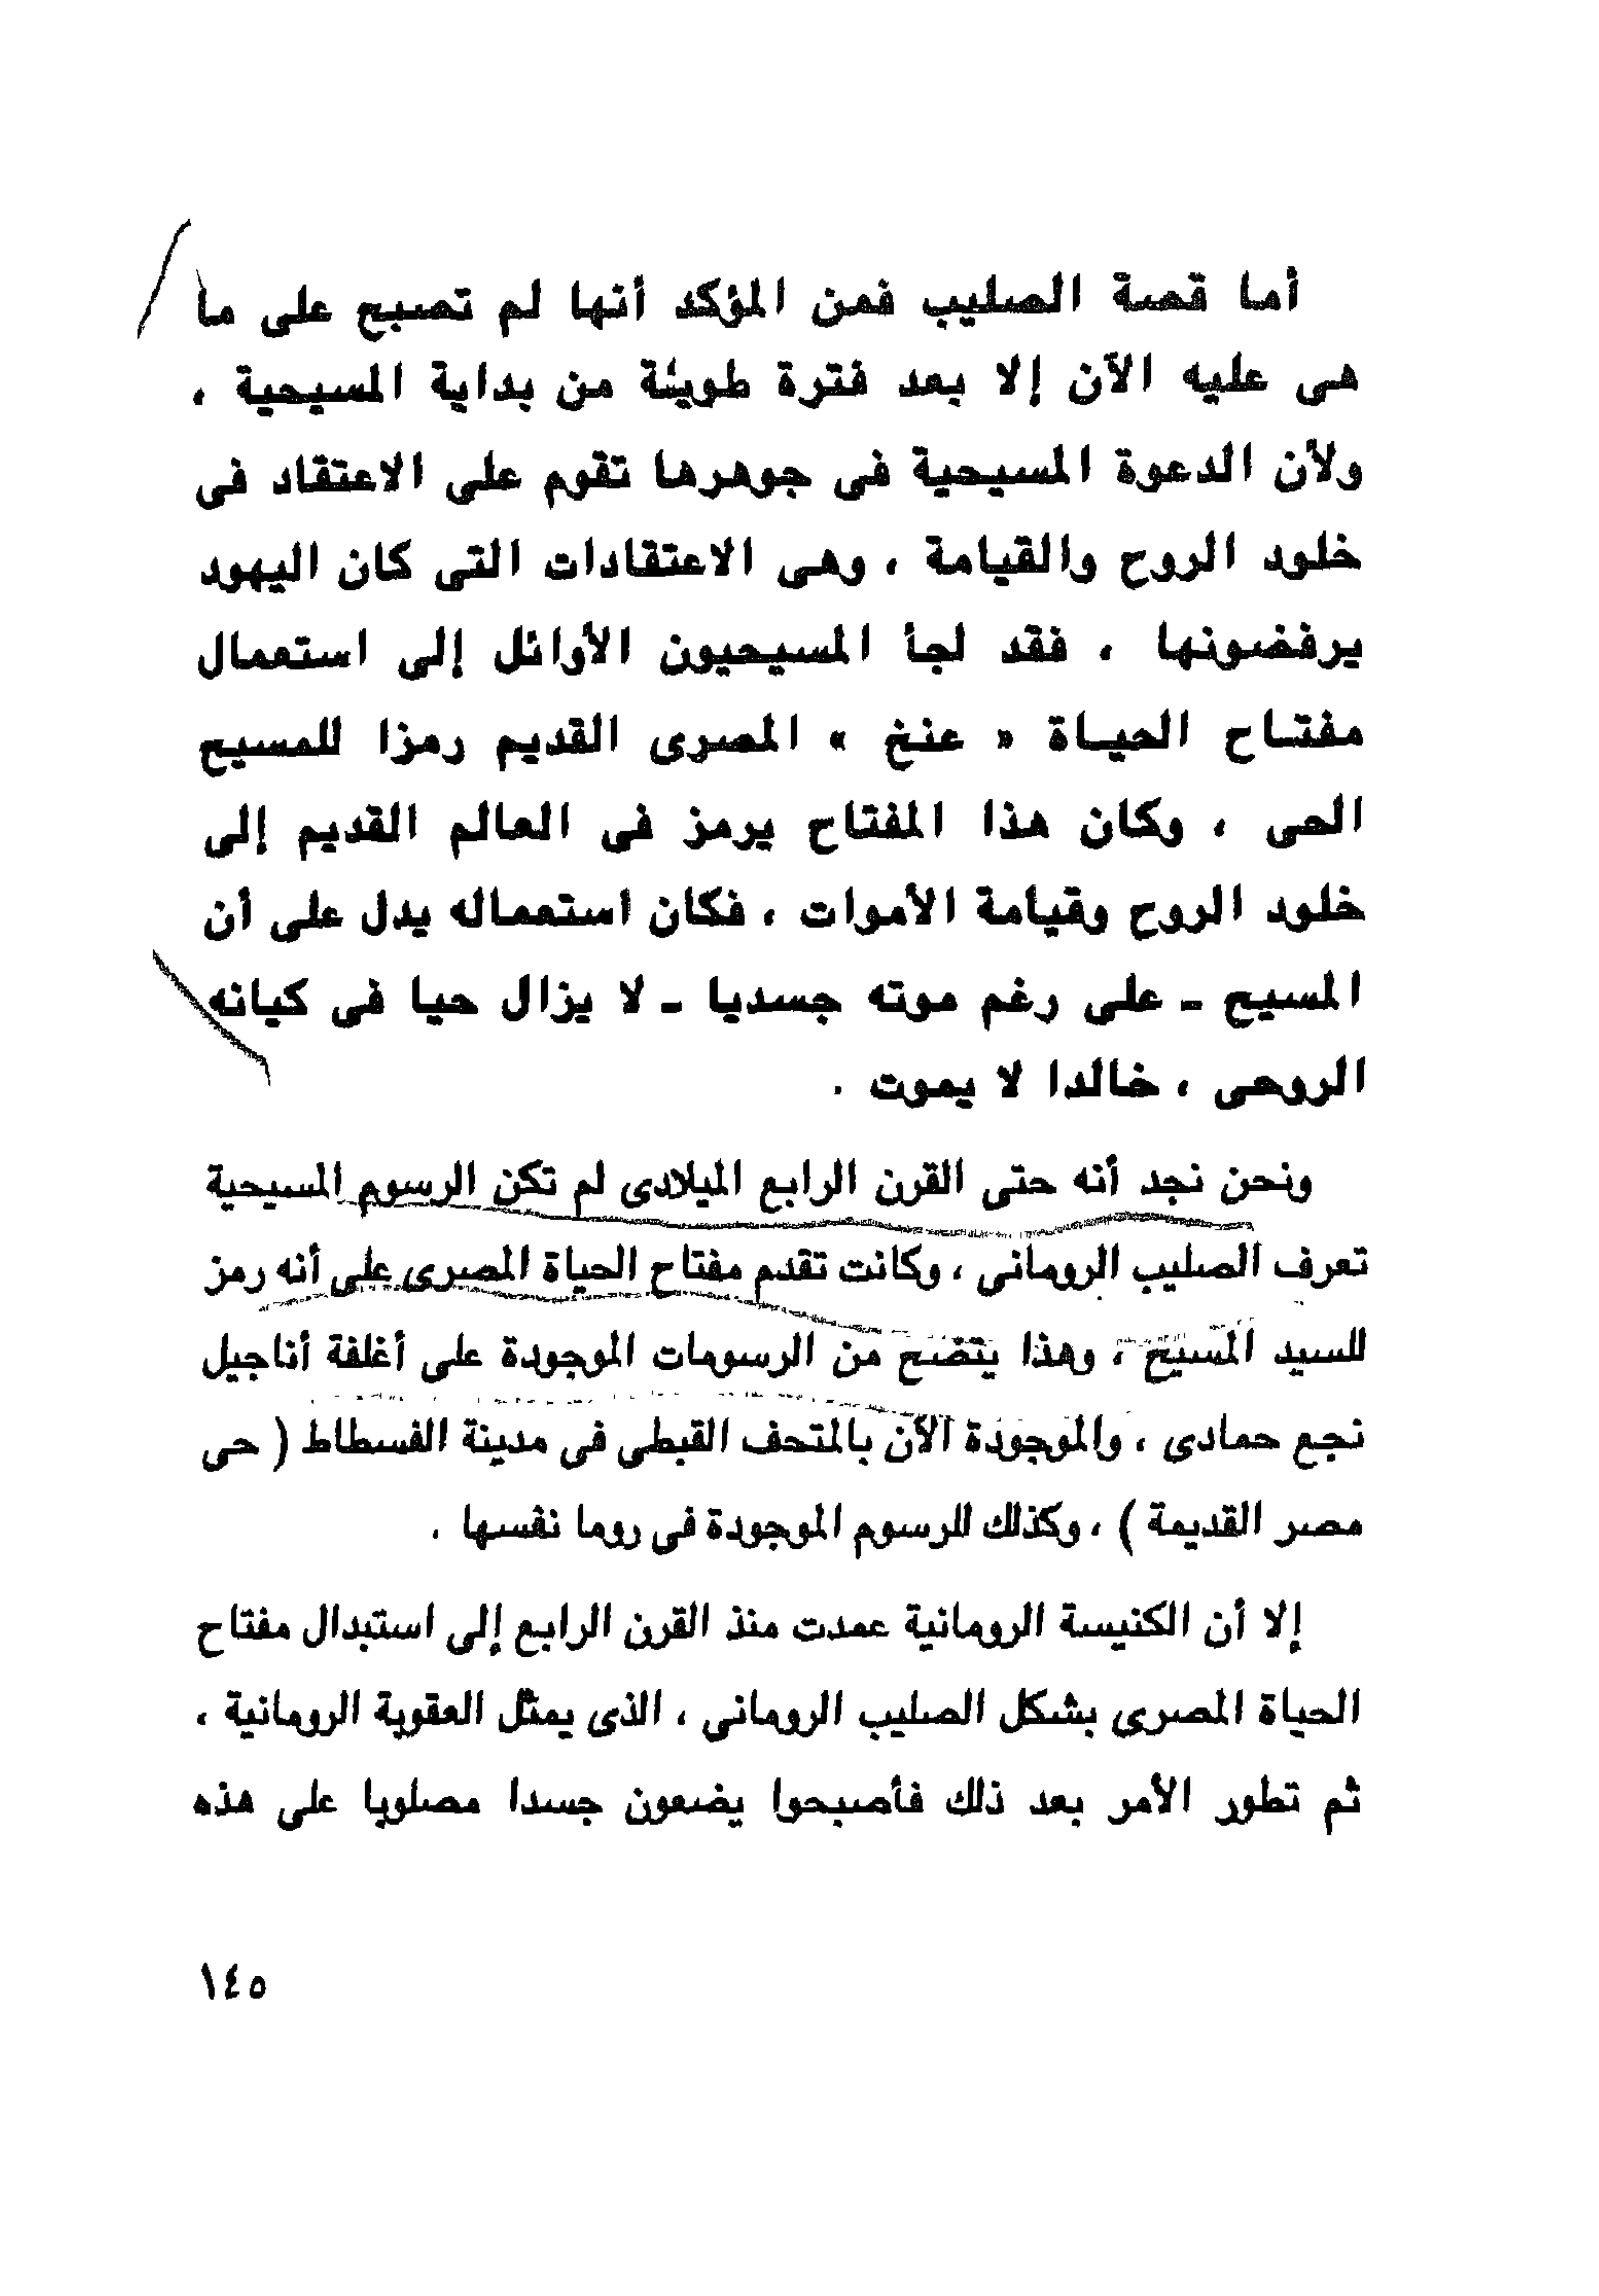 أما قصة الصليب فمن المؤكد أنها لم تصبح على ما
هى عليه الآن إلا بعد فترة طويلة من بداية المسيحية ،
ولأن الدعوة المسيحية فى جوهرها تقوم على الاعتقاد فى
خلود الروح والقيامة ، وهى الاعتقادات التى كان اليهود
يرفضونها ، فقد لجأ المسيحيون الأوائل إلى استعمال
مفتاح الحياة « عنخ » المصرى القديم رمزا للمسيح
الحى ، وكان هذا المفتاح يرمز فى العالم القديم إلى
خلود الروح وقيامة الأموات ، فكان استعماله يدل على أن
المسيح ـ على رغم موته جسديا ـ لا يزال حيا فى كيانه
الروحى ، خالدا لا يموت .
ونحن نجد أنه حتى القرن الرابع الميلادى لم تكن الرسوم المسيحية
تعرف الصليب الرومانى ، وكانت تقدم مفتاح الحياة المصرى على أنه رمز
للسيد المسيح ، وهذا يتضح من الرسومات الموجودة على أغلفة أناجيل
نجع حمادى ، والموجودة الآن بالمتحف القبطى فى مدينة الفسطاط ( حى
مصر القديمة ) ، وكذلك للرسوم الموجودة فى روما نفسها .
إلا أن الكنيسة الرومانية عمدت منذ القرن الرابع إلى استبدال مفتاح
الحياة المصرى بشكل الصليب الرومانى ، الذى يمثل العقوبة الرومانية ،
ثم تطور الأمر بعد ذلك فأصبحوا يضعون جسدا مصلوبا على هذه
١٤٥